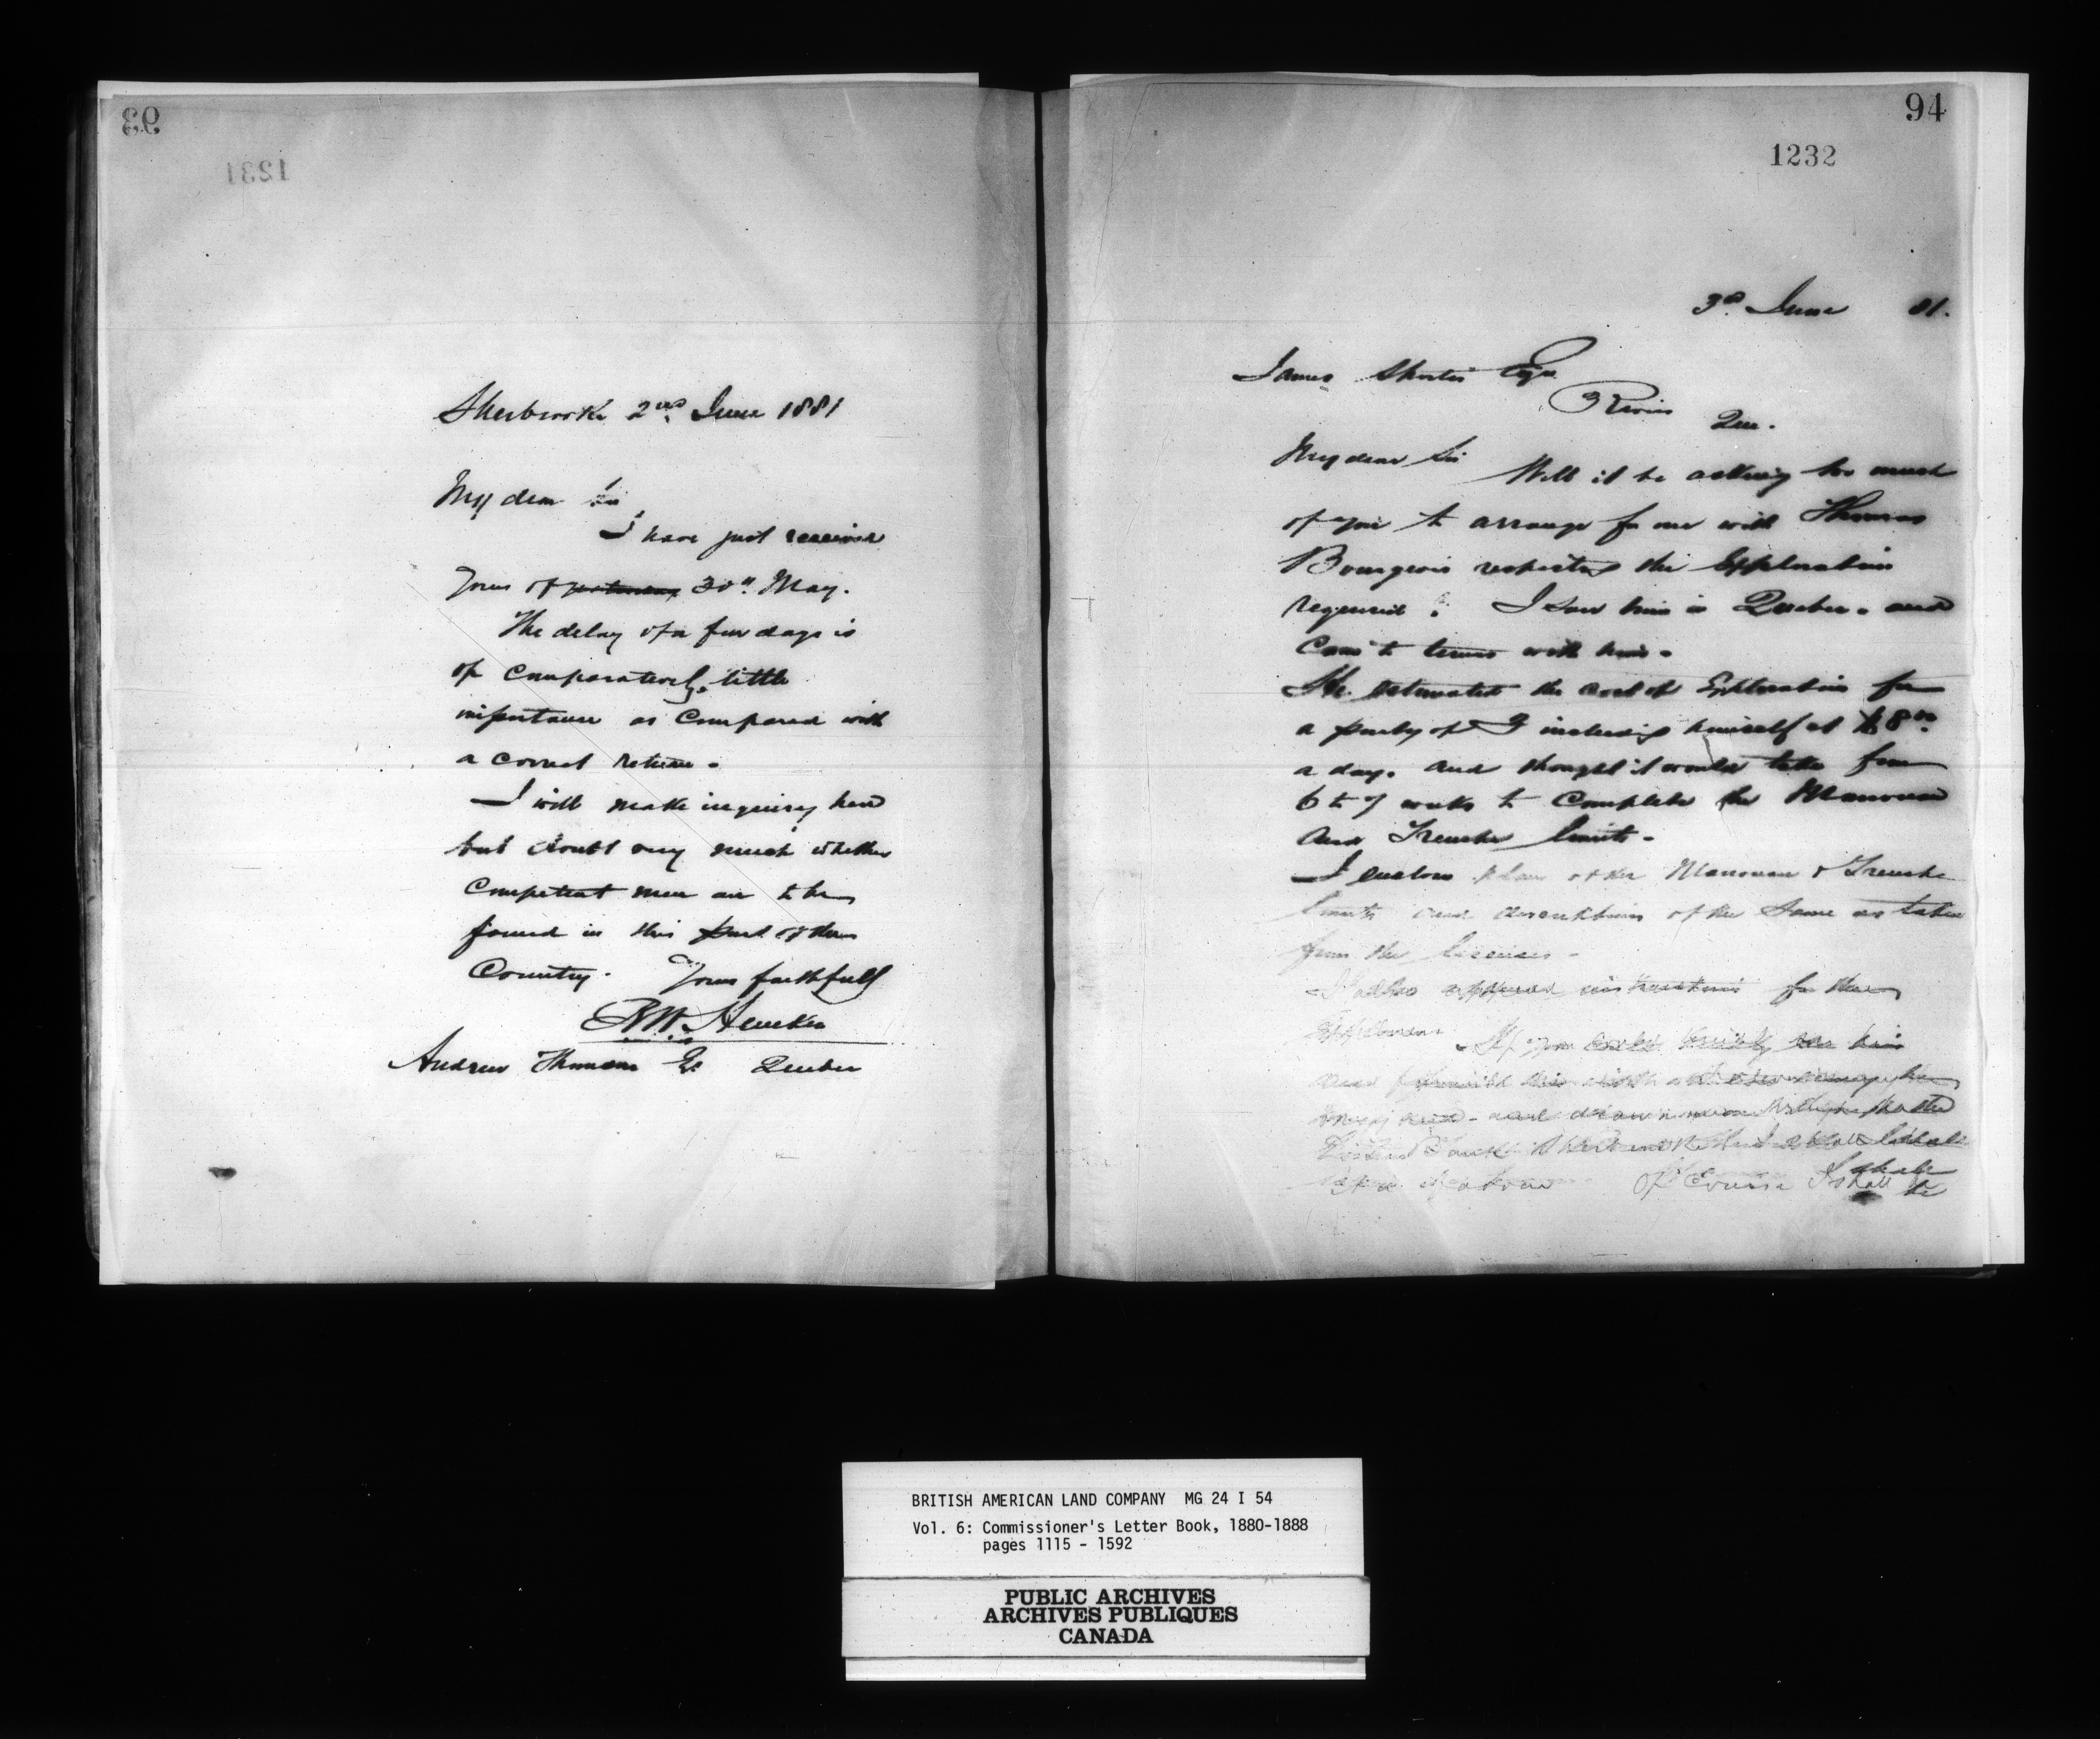 93
1231
Sherbrooke 2nd June 1881
My dear Sir
I have just received
Yours of yesterday 30th May.
The delay of a few days is
of comparatively little
importance as compared with
a correct return.
I will make inquiry here
but doubt very much whether
competent men are to be
found in this part of the
Country. Yours faithfully
R W Heneker
Andrew Thomson Eq Quebec
94
1232
3rd June 81.
James Shortis Esqr
3 Rivers
Que.
My dear Sir
Will it be asking too much
of you to arrange for me with Thomas
Bourgeois respecting the Exploration
required? I saw him in Quebec. and
Came to terms with him.
He estimated the cost of Exploration for
a party of 3 including himself at $8.00
a day. and thought it would take from
6 to 7 weeks to Complete the Manouan
and Trenche limits.
I enclose plan of the Manouan & Trenche
limits and description of the same as taken
from the licenses.
I also append instructions for the
If you could kindly see him
and furnish him with
and draw upon me through the
Eastern Townships Bank Sherbrooke
Of Course I shall be
BRITISH AMERICAN LAND COMPANY MG 24 I 54
Vol. 6: Commissioner's Letter Book, 1880-1888
pages 1115 - 1592
PUBLIC ARCHIVES
ARCHIVES PUBLIQUES
CANADA